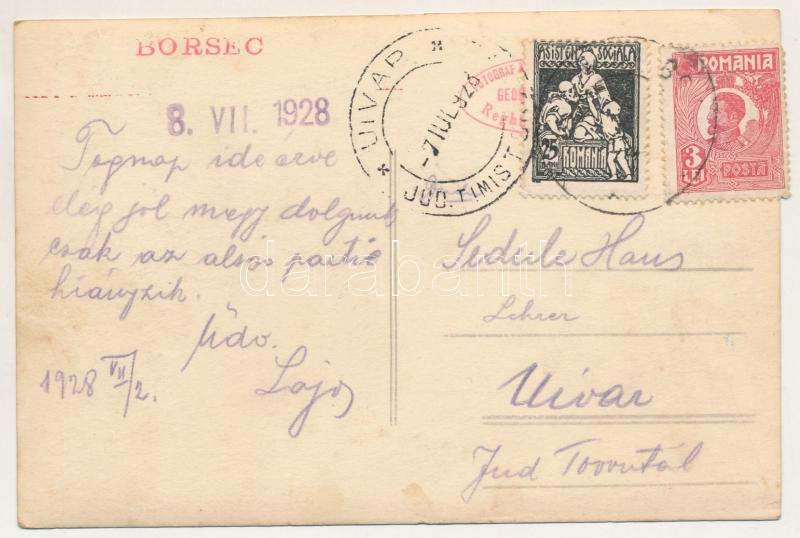 BORSEC
8. VII. 1928
Tegnap ide érve
elég jól megy dolgunk
csak az alsós parti
hiányzik.
Üdv.
Lajos
1928 VII/2.
UIVAR
-7 IUL 928
JUD. TIMIS T
FOTOGRAF
ASISTENTA SOCIALA
25
BANI
ROMANIA
ROMANIA
3
LEI
POSTA
Hans
Lehrer
Uivar
Jud Torontál
darabanth